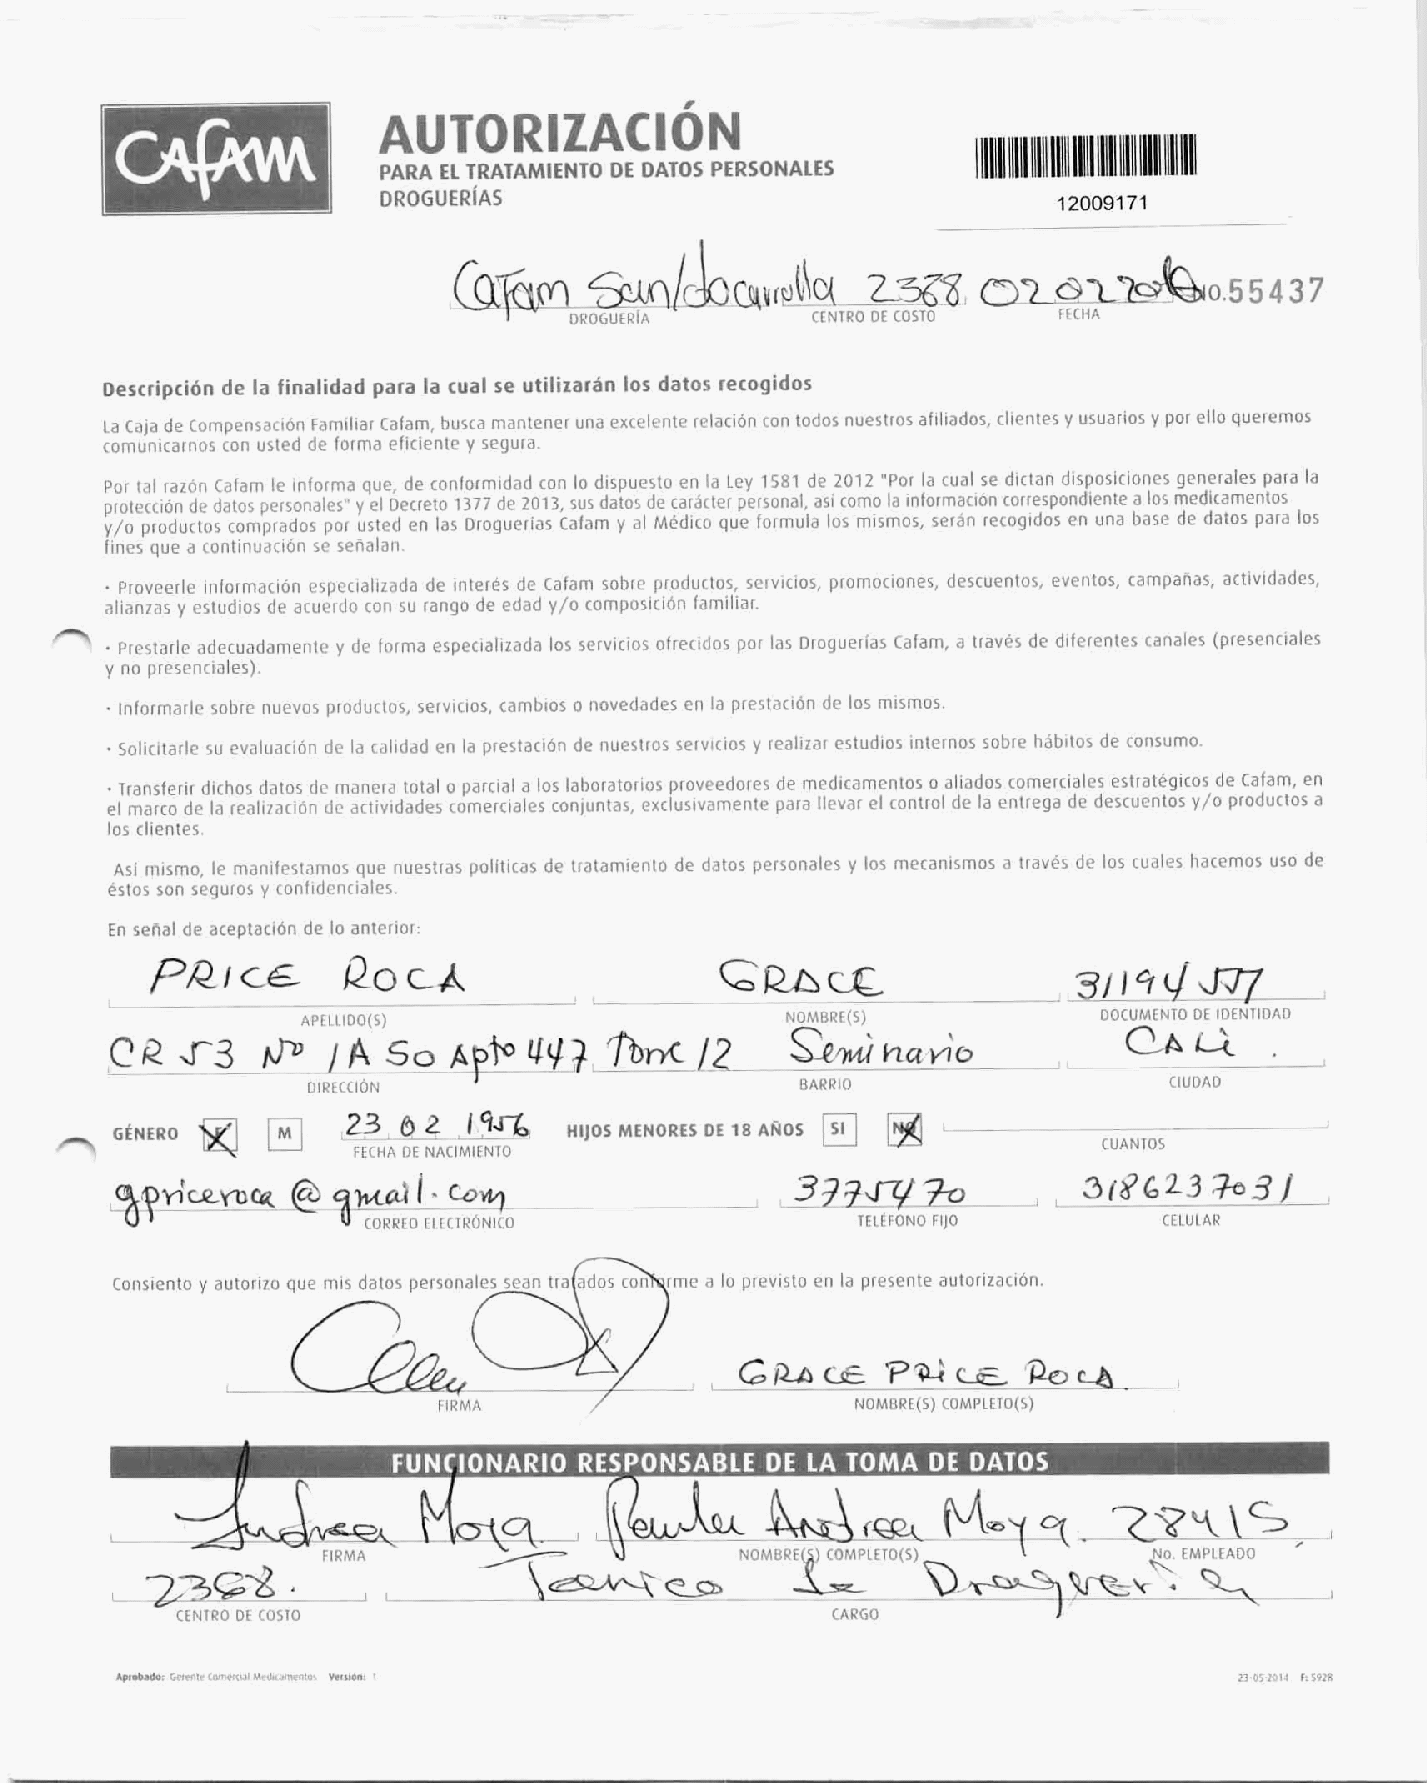 CAFAM
AUTORIZACIÓN
PARA EL TRATAMIENTO DE DATOS PERSONALES
DROGUERÍAS
12009171
Cafam 2368 02 02 No.55437
DROGUERÍA CENTRO DE COSTO FECHA
Descripción de la finalidad para la cual se utilizarán los datos recogidos
La Caja de Compensación Familiar Cafam, busca mantener una excelente relación con todos nuestros afiliados, clientes y usuarios y por ello queremos
comunicarnos con usted de forma eficiente y segura.
Por tal razón Cafam le informa que, de conformidad con lo dispuesto en la Ley 1581 de 2012 "Por la cual se dictan disposiciones generales para la
protección de datos personales" y el Decreto 1377 de 2013, sus datos de carácter personal, así como la información correspondiente a los medicamentos
y/o productos comprados por usted en las Droguerías Cafam y al Médico que formula los mismos, serán recogidos en una base de datos para los
fines que a continuación se señalan.
· Proveerle información especializada de interés de Cafam sobre productos, servicios, promociones, descuentos, eventos, campañas, actividades,
alianzas y estudios de acuerdo con su rango de edad y/o composición familiar.
· Prestarle adecuadamente y de forma especializada los servicios ofrecidos por las Droguerías Cafam, a través de diferentes canales (presenciales
y no presenciales).
· Informarle sobre nuevos productos, servicios, cambios o novedades en la prestación de los mismos.
· Solicitarle su evaluación de la calidad en la prestación de nuestros servicios y realizar estudios internos sobre hábitos de consumo.
· Transferir dichos datos de manera total o parcial a los laboratorios proveedores de medicamentos o aliados comerciales estratégicos de Cafam, en
el marco de la realización de actividades comerciales conjuntas, exclusivamente para llevar el control de la entrega de descuentos y/o productos a
los clientes.
Así mismo, le manifestamos que nuestras políticas de tratamiento de datos personales y los mecanismos a través de los cuales hacemos uso de
éstos son seguros y confidenciales.
En señal de aceptación de lo anterior:
PRICE ROCA GRACE 31194557
APELLIDO(S) NOMBRE(S) DOCUMENTO DE IDENTIDAD
CR 53 Nº 1A 50 Apto 447 Torre 12 Seminario CALi
DIRECCIÓN BARRIO CIUDAD
GÉNERO F M 23 02 1956 HIJOS MENORES DE 18 AÑOS SI NO
FECHA DE NACIMIENTO CUANTOS
gpriceroca@gmail.com 3775470 3186237031
CORREO ELECTRÓNICO TELÉFONO FIJO CELULAR
Consiento y autorizo que mis datos personales sean tratados conforme a lo previsto en la presente autorización.
GRACE PRiCE ROCA
FIRMA NOMBRE(S) COMPLETO(S)
FUNCIONARIO RESPONSABLE DE LA TOMA DE DATOS
Andrea Moya Paula Andrea Moya. 28415
FIRMA NOMBRE(S) COMPLETO(S) No. EMPLEADO
2368. Tecnico de Drogueria
CENTRO DE COSTO CARGO
Aprobado: Gerente Comercial Medicamentos Versión: 1 23-05-2014 F: 5928